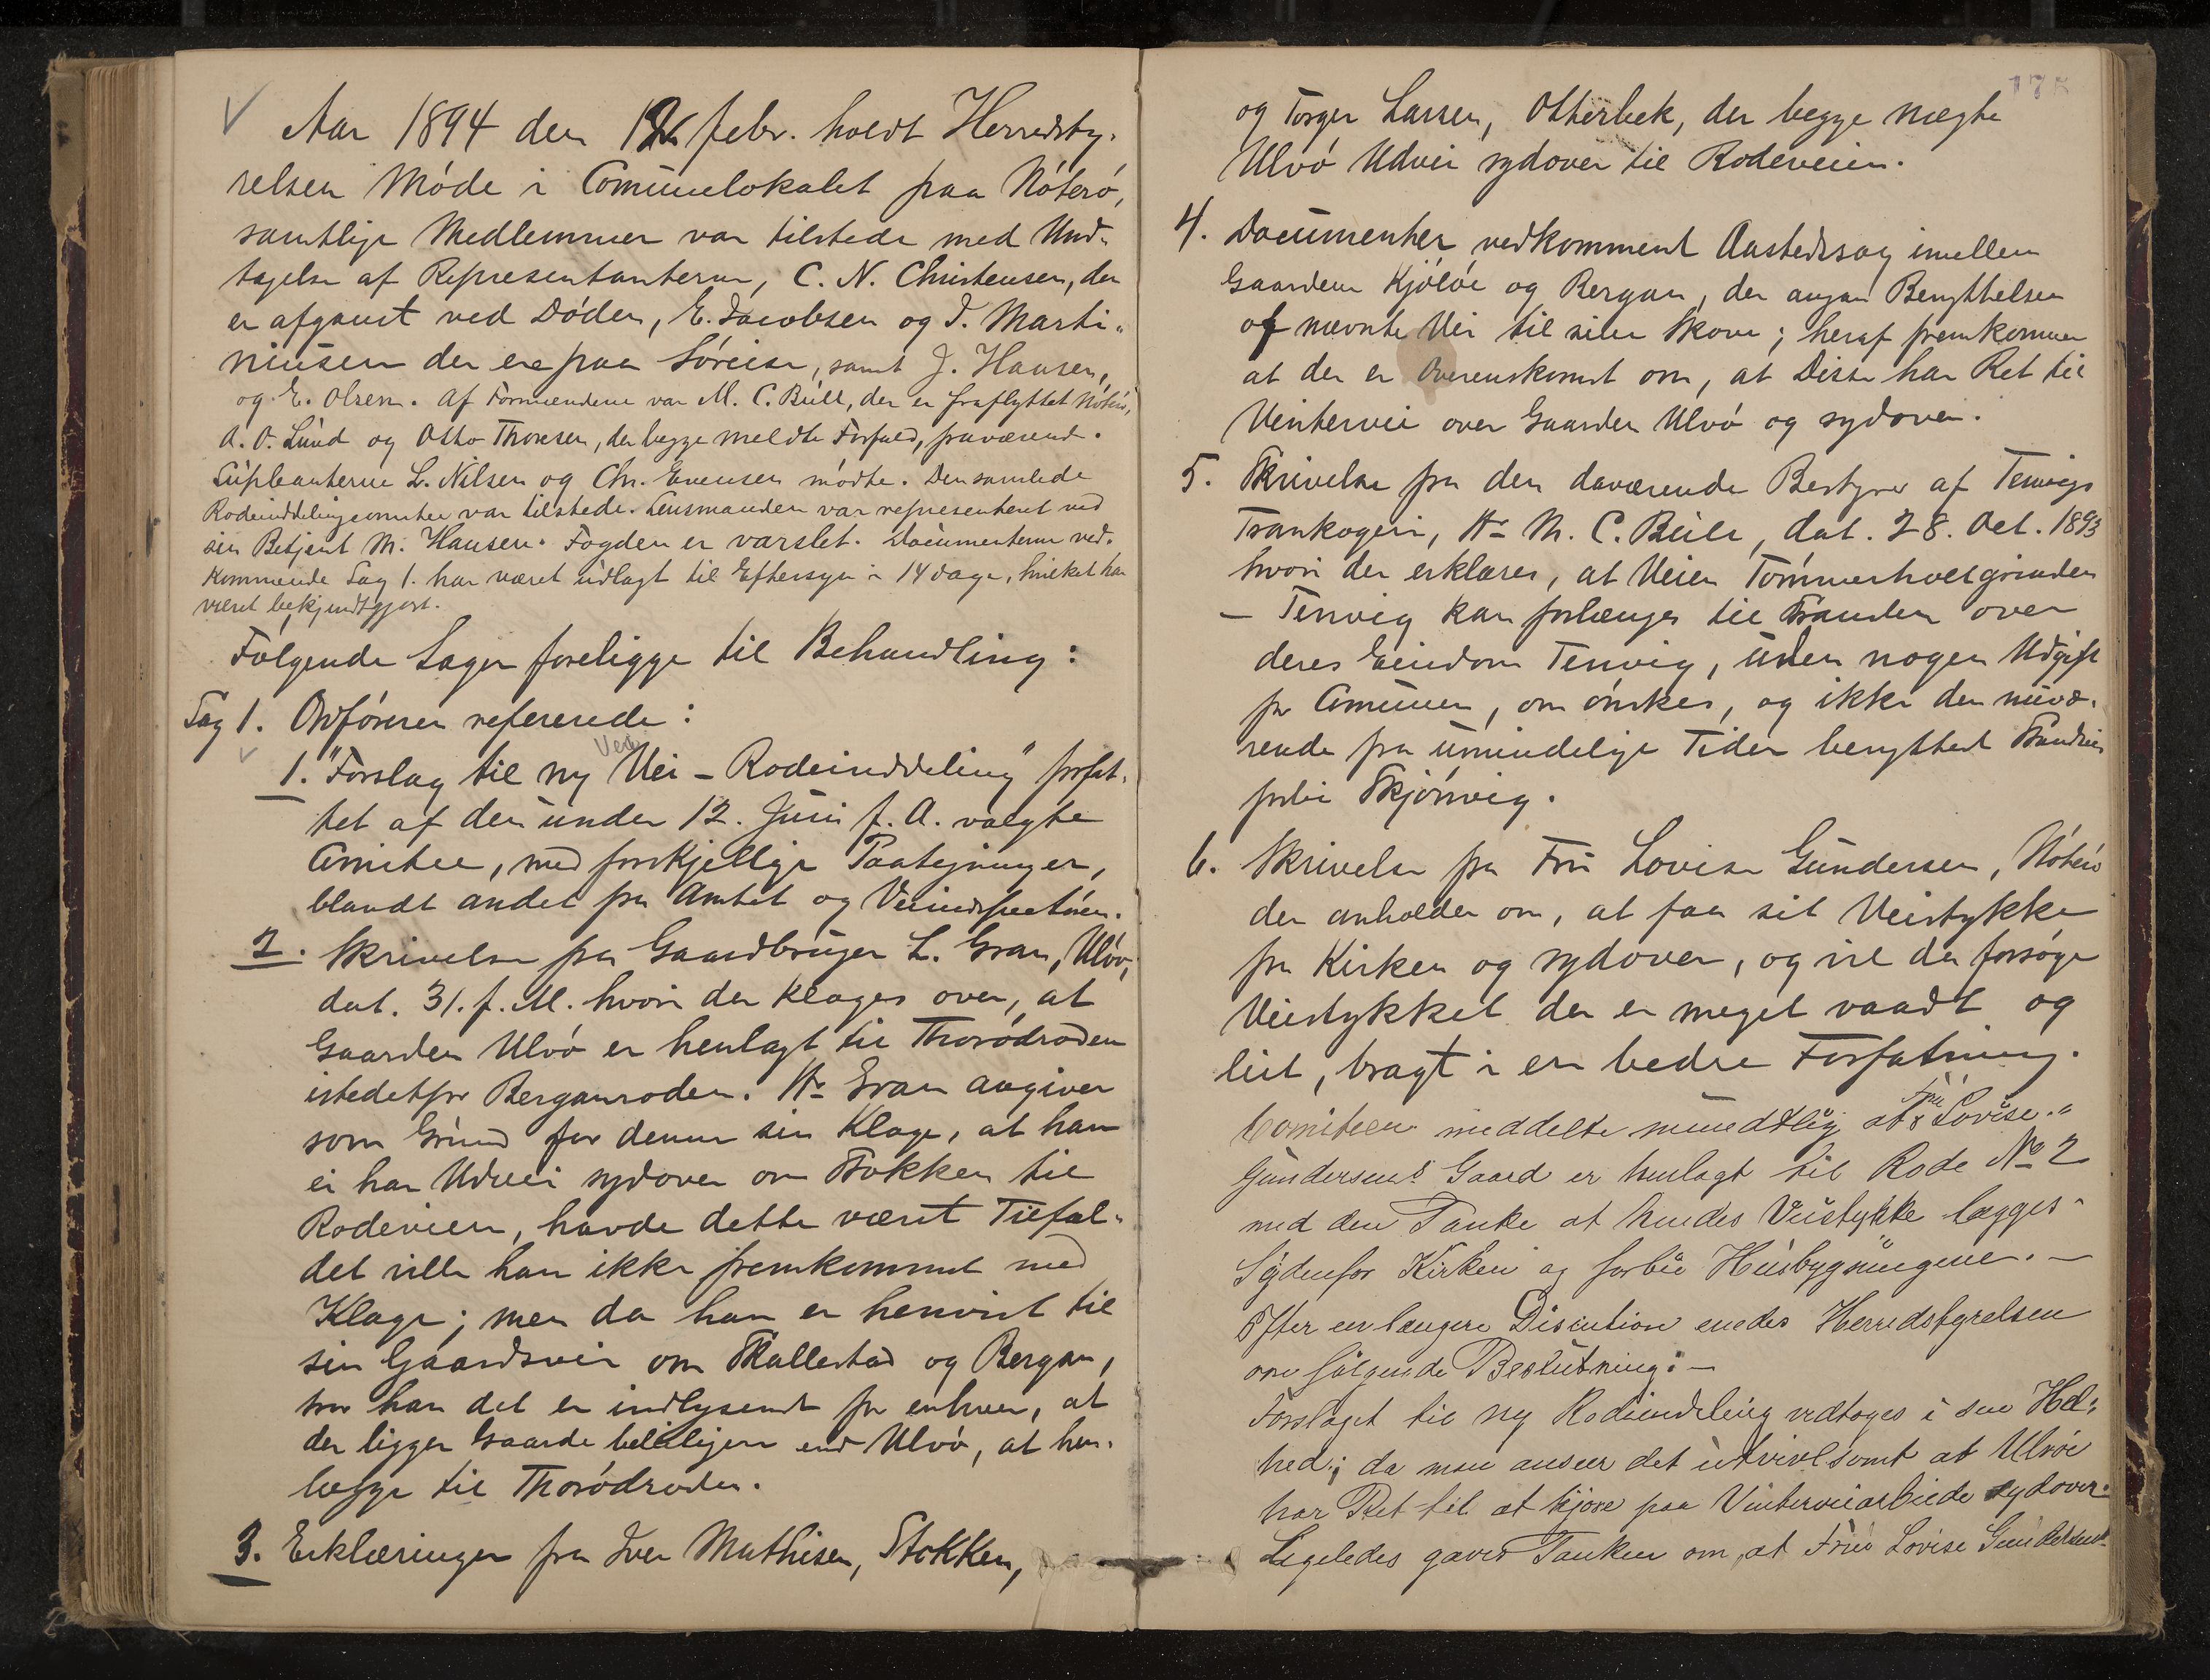 Aar 1894 den 12 febr. holdt Herredsty-
relsen Møde i Comunelokalet paa Nøterø,
samtlige Medlemmer var tilstede med Und-
tagelse af Representanterne, C. N. Christensen, der
er afgaaet ved Døden, E. Jacobsen og I. Marti-
niusen der ere paa Søreise, samt J. Hansen,
og E. Olsen. Af Formændene var M. C. Bull, der er fraflyttet Nøterø,
A. O. Lund og Otto Thoresen, der begge meldte Forfald, fraværende.
Supleanterne L. Nilsen og Chr. Evensen mødte. Den samlede
Rodeinddelingscomitee var tilstede. Lensmanden var representeret ved
sin Betjent M. Hansen. Fogden er varslet. Documenterne ved-
kommende Sag 1. har været udlagt til Eftersyn i 14 dage, hvilket har
været bekjendtgjort.
Følgende Sager foreligge til Behandling:
Sag 1. Ordføreren refererede:
1. "Forslag til ny Vei-Rodeinddeling" forfat-
tet af den under 12. Juni f. A. valgte
Comitee, med forskjellige Paategninger,
blandt andet fra Amtet og Veiinspectøren.
2. Skrivelse fra Gaardbruger L. Gran, Ulvø,
dat. 31. f. M. hvori der klages over, at
Gaarden Ulvø er henlagt til Thorødroden
istedetfor Berganroden. Hr Gran angiver
som Grund for denne sin Klage, at han
ei har Udvei sydover om Stokken til
Rodeveien, havde dette været Tilfæl-
det ville han ikke fremkommet med
Klage; men da han er henvist til
sin Gaardsvei om Skallestad og Bergan,
tror han det er indlysende for enhver, at
der ligger Gaarde beleiligere end Ulvø, at hen-
lægge til Thorødroden.
3. Erklæringer fra Iver Mathisen, Stokken,
og Torger Larsen, Otterbek, der begge nægte
Ulvø Udvei sydover til Rodeveien.
4. Documenter vedkomment Aastedssag imellem
Gaardene Kjøløe og Bergan, der angaar Benyttelsen
af nævnte Vei til sine Skove; heraf fremkommer
at der er Overenskomst om, at Disse har Ret til
Vintervei over Gaarden Ulvø og sydover.
5. Skrivelse fra den daværende Bestyrer af Tenvigs
Trankogeri, Hr M. C. Bull, dat. 28. Oct. 1893
hvori der erklæres, at Veien Tømmerholtgrinden
- Tenvig kan forlænges til Stranden over
deres Eiendom Tenvig, uden nogen Udgift
for Comunen, om ønskes, og ikke den nuvæ-
rende fra umindelige Tider benyttede Strandvei
forbi Skjørvig.
6. Skrivelse fra Fru Lovise Gundersen, Nøterø
der anholder om, at faa sit Veistykke
fra Kirken og sydover, og vil da forsøge
Veistykket der er meget vaadt og
lidt, bragt i en bedre Forfatning.
Comiteen meddelte mundtlig at Fru Lovise
Gundersens Gaard er henlagt til Rode No 2
med den Tanke at hendes Veistykke lægges
Søndenfor Kirken og forbi Husbygningene. -
Efter en længere Discution enedes Herredstyrelsen
om følgende Beslutning: -
Forslaget til ny Rodeinddeling vedtages i sin Hel-
hed; da man anseer det utvivlsomt at Ulvøe
har Ret til at kjøre paa Vinterveiarbeide sydover.
Ligeledes gaves Tanken om, at Frue Lovise Gundersens